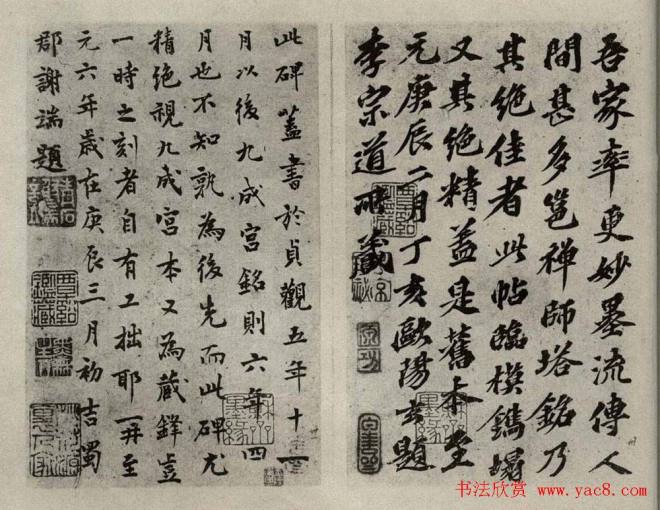 吾家率更妙墨流傳人
間甚多邕禪師塔銘乃
其絕佳者此帖臨模鐫搨
又其絕精蓋是舊本至
元庚辰二月丁亥歐陽玄題
李宗道所藏
此碑蓋書於貞觀五年十一
月以後九成宮銘則六年四
月也不知孰為後先而此碑尤
精絕視九成宮本又為藏鋒豈
一時之刻者自有工拙耶再至
元六年歲在庚辰三月初吉蜀
郡謝端題
書法欣赏 www.yac8.com